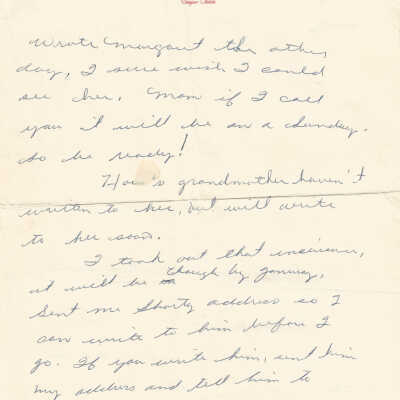 wrote Margaret the other
day, I sure wish I could
see her. Mom if I call
you it will be on a Sunday.
So be ready!
How's grandmother haven't
written to her, but will write
to her soon.
I took out that insurance,
it will be though by January,
Sent me Shorty address so I
can write to him before I
go. If you write him, sent him
my address and tell him to